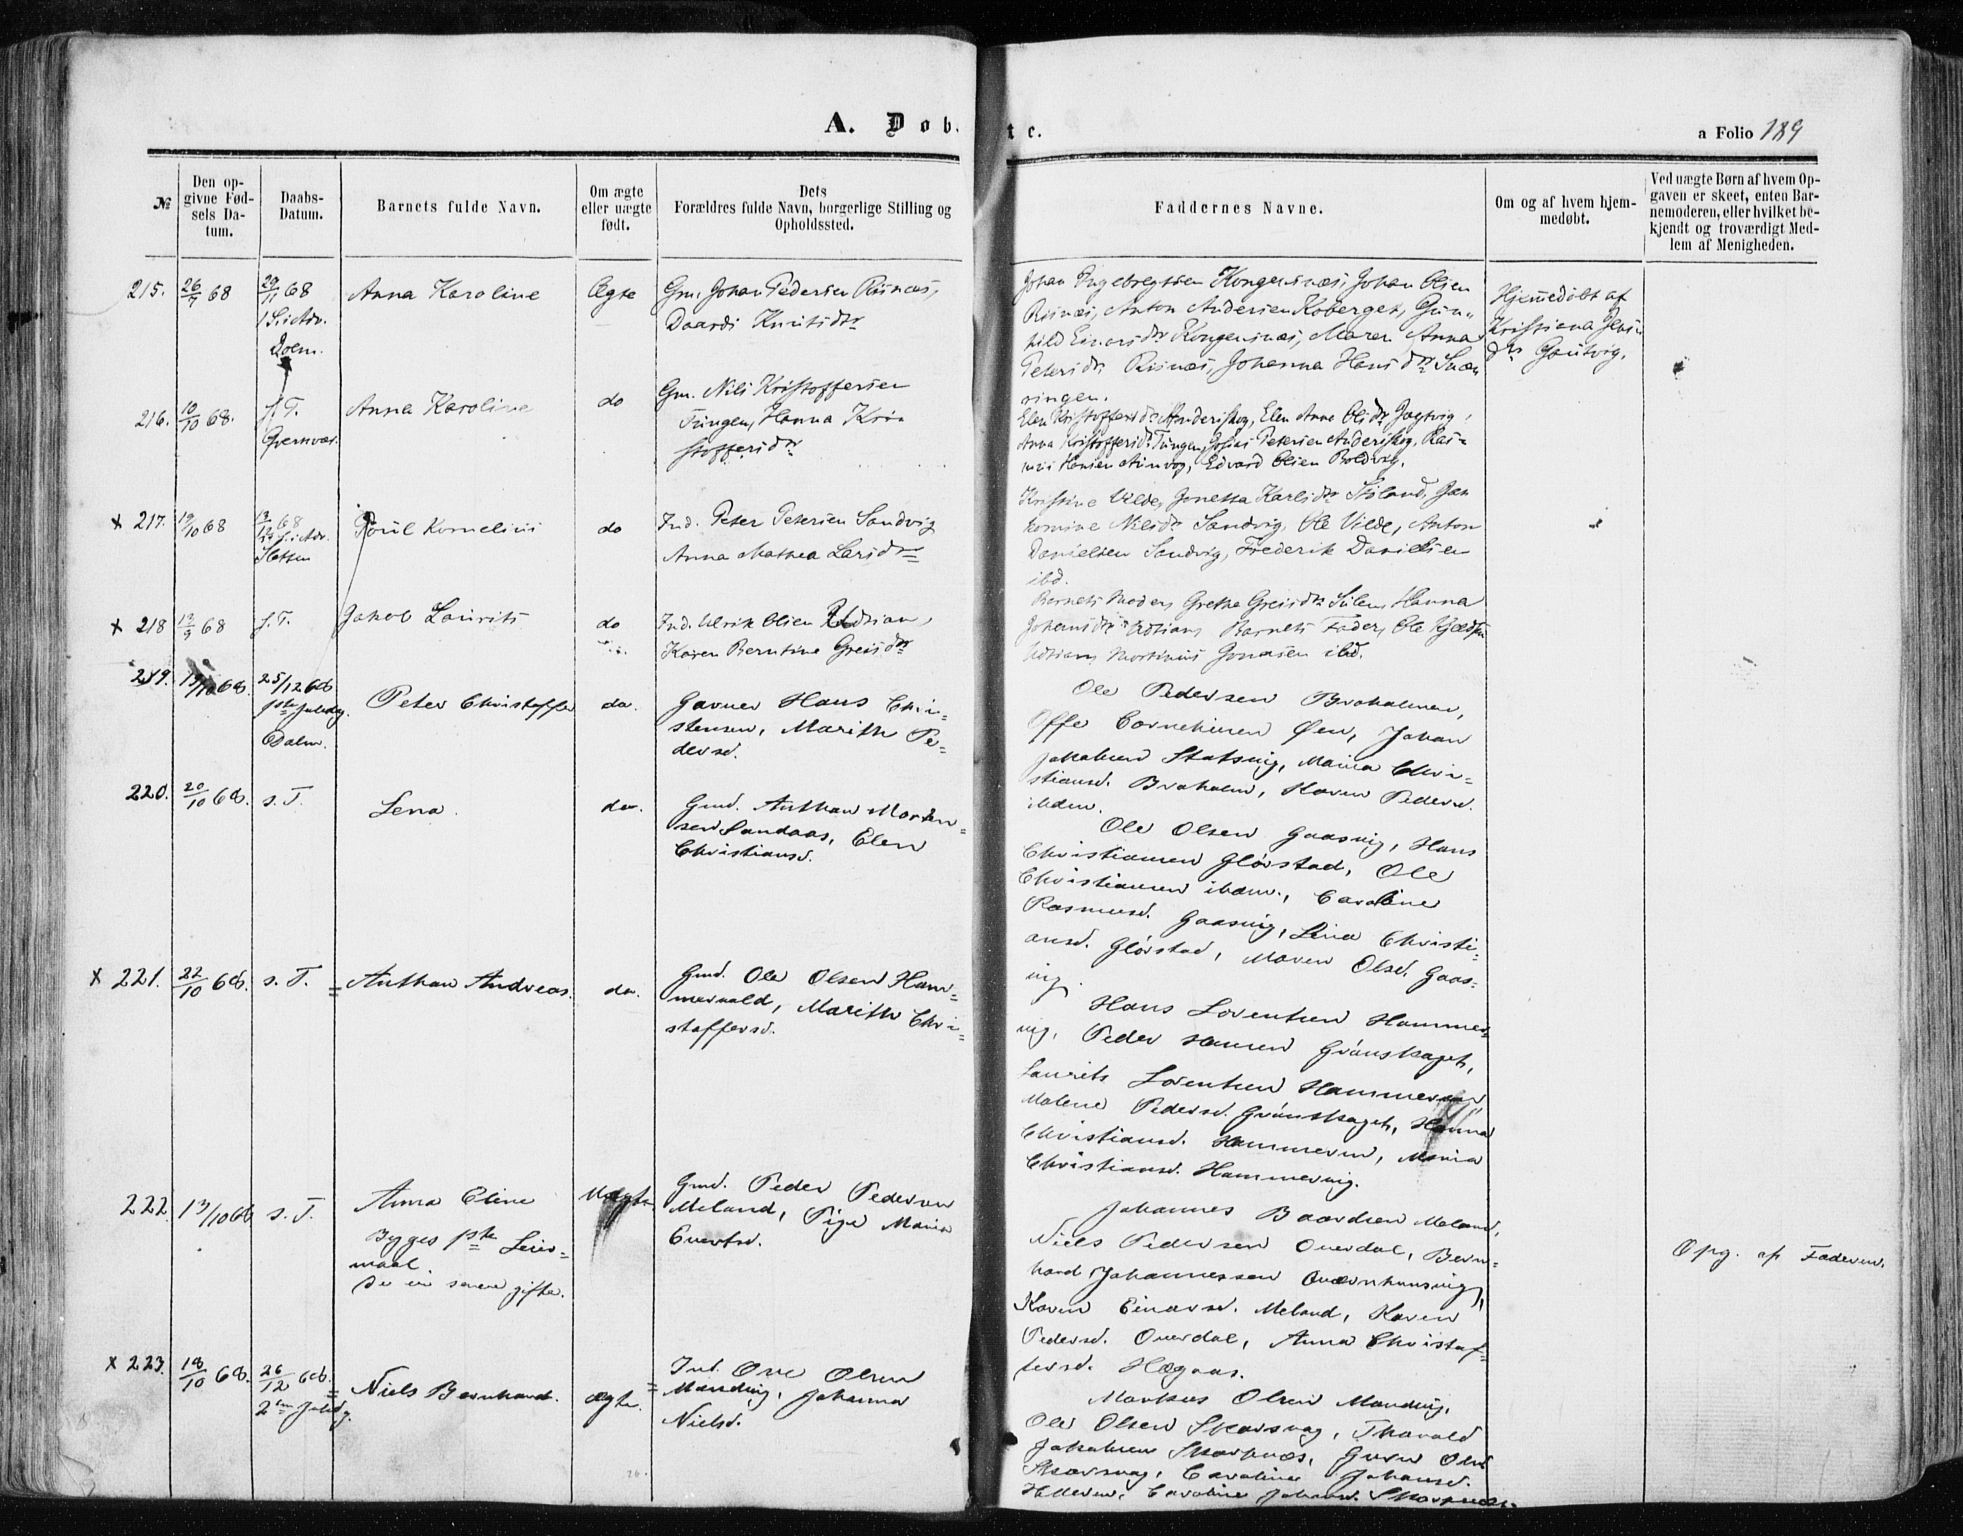 A. Døb. t e.
a Folio 189
№
Den op-
givne Fød-
sels Da-
tum.
Daabs-
Datum.
Barnets fulde Navn.
Om ægte
eller uægte
født.
Dets
Forældres fulde Navn, borgerlige Stilling og
Opholdssted.
Faddernes Navne.
Om og af hvem hjem-
medøbt.
Ved uægte Børn af hvem Op-
gaven er skeet, enten Bar-
nemoderen, eller hvilket be-
kjendt og troværdigt Med-
lem af Menigheden.
215.
68
29/11 68
Dolm.
Anna Karoline
Ægte
Gm. Johan Pedersen Risnæs,
Johan Ingebregtsen Kongensnæs, Johan Olsen
Risnæs, Anton Andersen Koberget, Gun-
hild Einarsdr Kongensnæs, Maren Anna
Petersdr Risnæs, Johanna Hansdr
ringen.
Hjemmedøbt af
Kristiana
216.
10/10 68.
s. T.
Anna Karoline
do
Gm. Nils Kristoffersen
Tungen, Hanna Kri-
stoffersdr
Elen Kristoffersdr Anderskog, Elen Anna Olsdr
Anna Kristoffersdr Tungen, Josias Petersen Anderskog, Ras-
mus Hansen, Edvard Olsen
x 217.
19/10 68
13/12 68
Poul Kornelius
do
Ind. Peter Petersen Sandvig
Anna Mathea Larsdr
Kristine Vilde, Jonetta Karlsdr
Nilsdr Sandvig, Ole Vilde, Anton
Danielsen Sandvig, Frederik Danielsen
ibd.
x 218
68
s. T.
Jakob Laurits
do
Ind. Ulrik Olsen
Karen Berntine Greisdr
Barnets Moder, Grethe Greisdr Hanna
Johansdr Barnets Fader, Ole
Mortinus Jonasen ibd.
219.
68.
25/12 68
1ste Juledag.
Dolm.
Peter Christoffer
do.
Gaardm. Hans Chri-
stensen, Marith Pe-
dersd.
Ole Pedersen Braholmen,
Offe Corneliusen Øen, Johan
Jakobsen
stiansd. Braholm, Karen Pedersd.
ibdem.
220.
20/10 68.
s. T.
Lena.
do.
Gmd. Anthon Morten-
sen Sandaas, Elen
Christiansd.
Ole Olsen Gaasvig, Hans
Christiansen Glørstad, Ole
Christiansen ibdem., Caroline
Rasmusd. Gaasvig, Lina Christi-
ansd. Glørstad, Maren Olsd. Gaas-
vig.
x 221.
22/10 68.
s. T.
Anthon Andreas.
do.
Gmd. Ole Olsen Ham-
mervold, Marith Chri-
stoffersd.
Hans Lorentsen Hammer-
vig, Peder Hansen Grønskaget,
Laurits Lorentsen
Malene Pedersd. Grønskaget, Hanna
Christiansd. Maria
Christiansd. Hammervig.
222.
13/10 68
s. T.
Anna Eline
Begges 1ste Leier-
maal
De ere senere gifte.
Uægte
Gmd. Peder Pedersen
Meland, Pige Maria
Evertsd.
Johannes Baardsen Meland,
Niels Pedersen Overdal, Bern-
hard Johannessen
Karen Einarsd. Meland, Karen
Pedersd. Overdal, Anna Christof-
fersd. Hægaas.
Opg. af Faderen.
x 223.
18/10 68.
26/12 68.
2den Juledag.
Niels Bernhard.
Ægte.
Ind. Ove Olsen
Johanna
Nielsd.
Markus Olsen
Ole Olsen Skarsvag, Thorvald
Jakobsen Skarpnæs, Guru Olsd.
Skarsvag, Caroline Johansd.
Caroline Johansd. Skarpnæs.